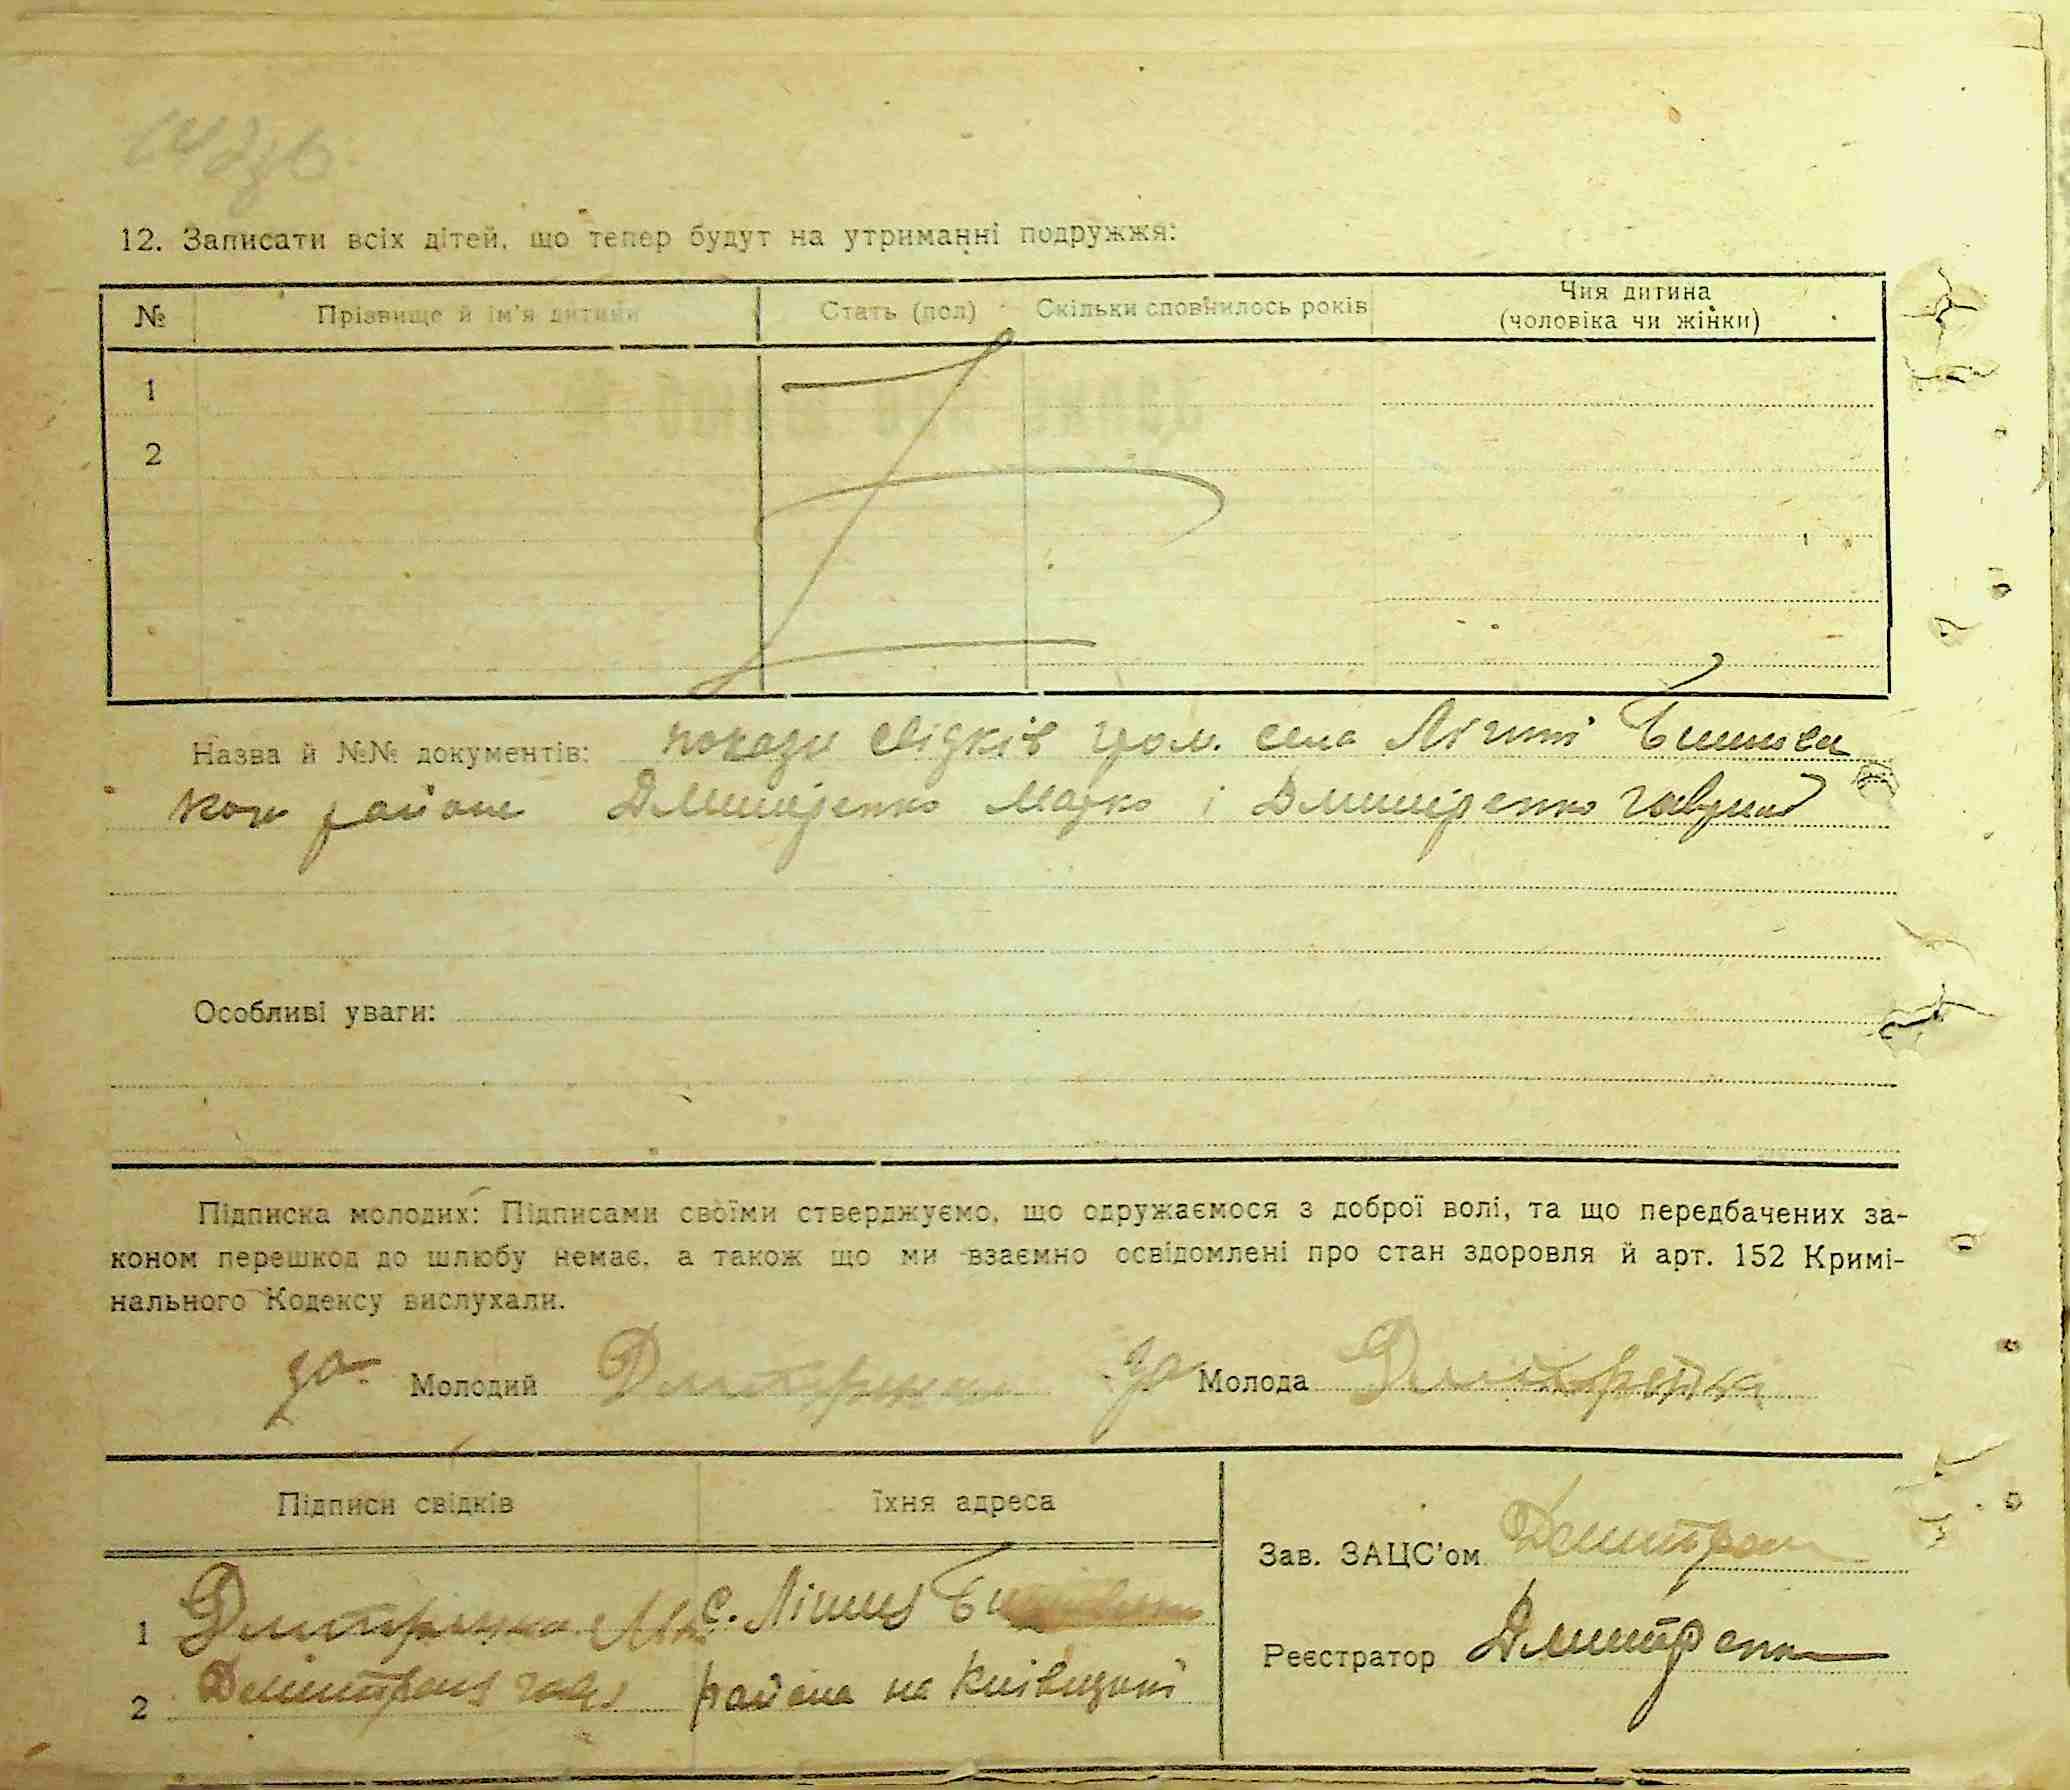 12. Записати всіх дітей, що тепер будут на утриманні подружжя:
№ Прізвище й ім'я дитини Стать (пол) Скільки сповнилось років Чия дитина (чоловіка чи жінки)
1
2
Назва й №№ документів: покази свідків гром. села
району Дмитренко Марко і Дмитренко Гаврило
Особливі уваги:
Підписка молодих: Підписами своїми стверджуємо, що одружаємося з доброї волі, та що передбачених за-
коном перешкод до шлюбу немає, а також що ми взаємно освідомлені про стан здоровля й арт. 152 Кримі-
нального Кодексу вислухали.
за Молодий Дмитренко за Молода Дмитренко
Підписи свідків Їхня адреса
Зав. ЗАЦС'ом
1 Дмитренко с.
Реєстратор Дмитренко
2 района на Київщині